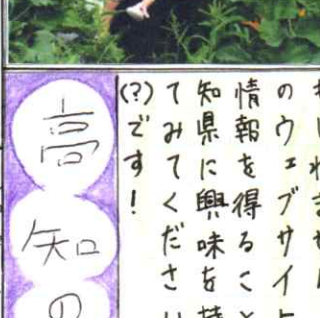 のウェブサイト
情報を得ること
知県に興味を持
てみてくださ
(?)です!
高知の